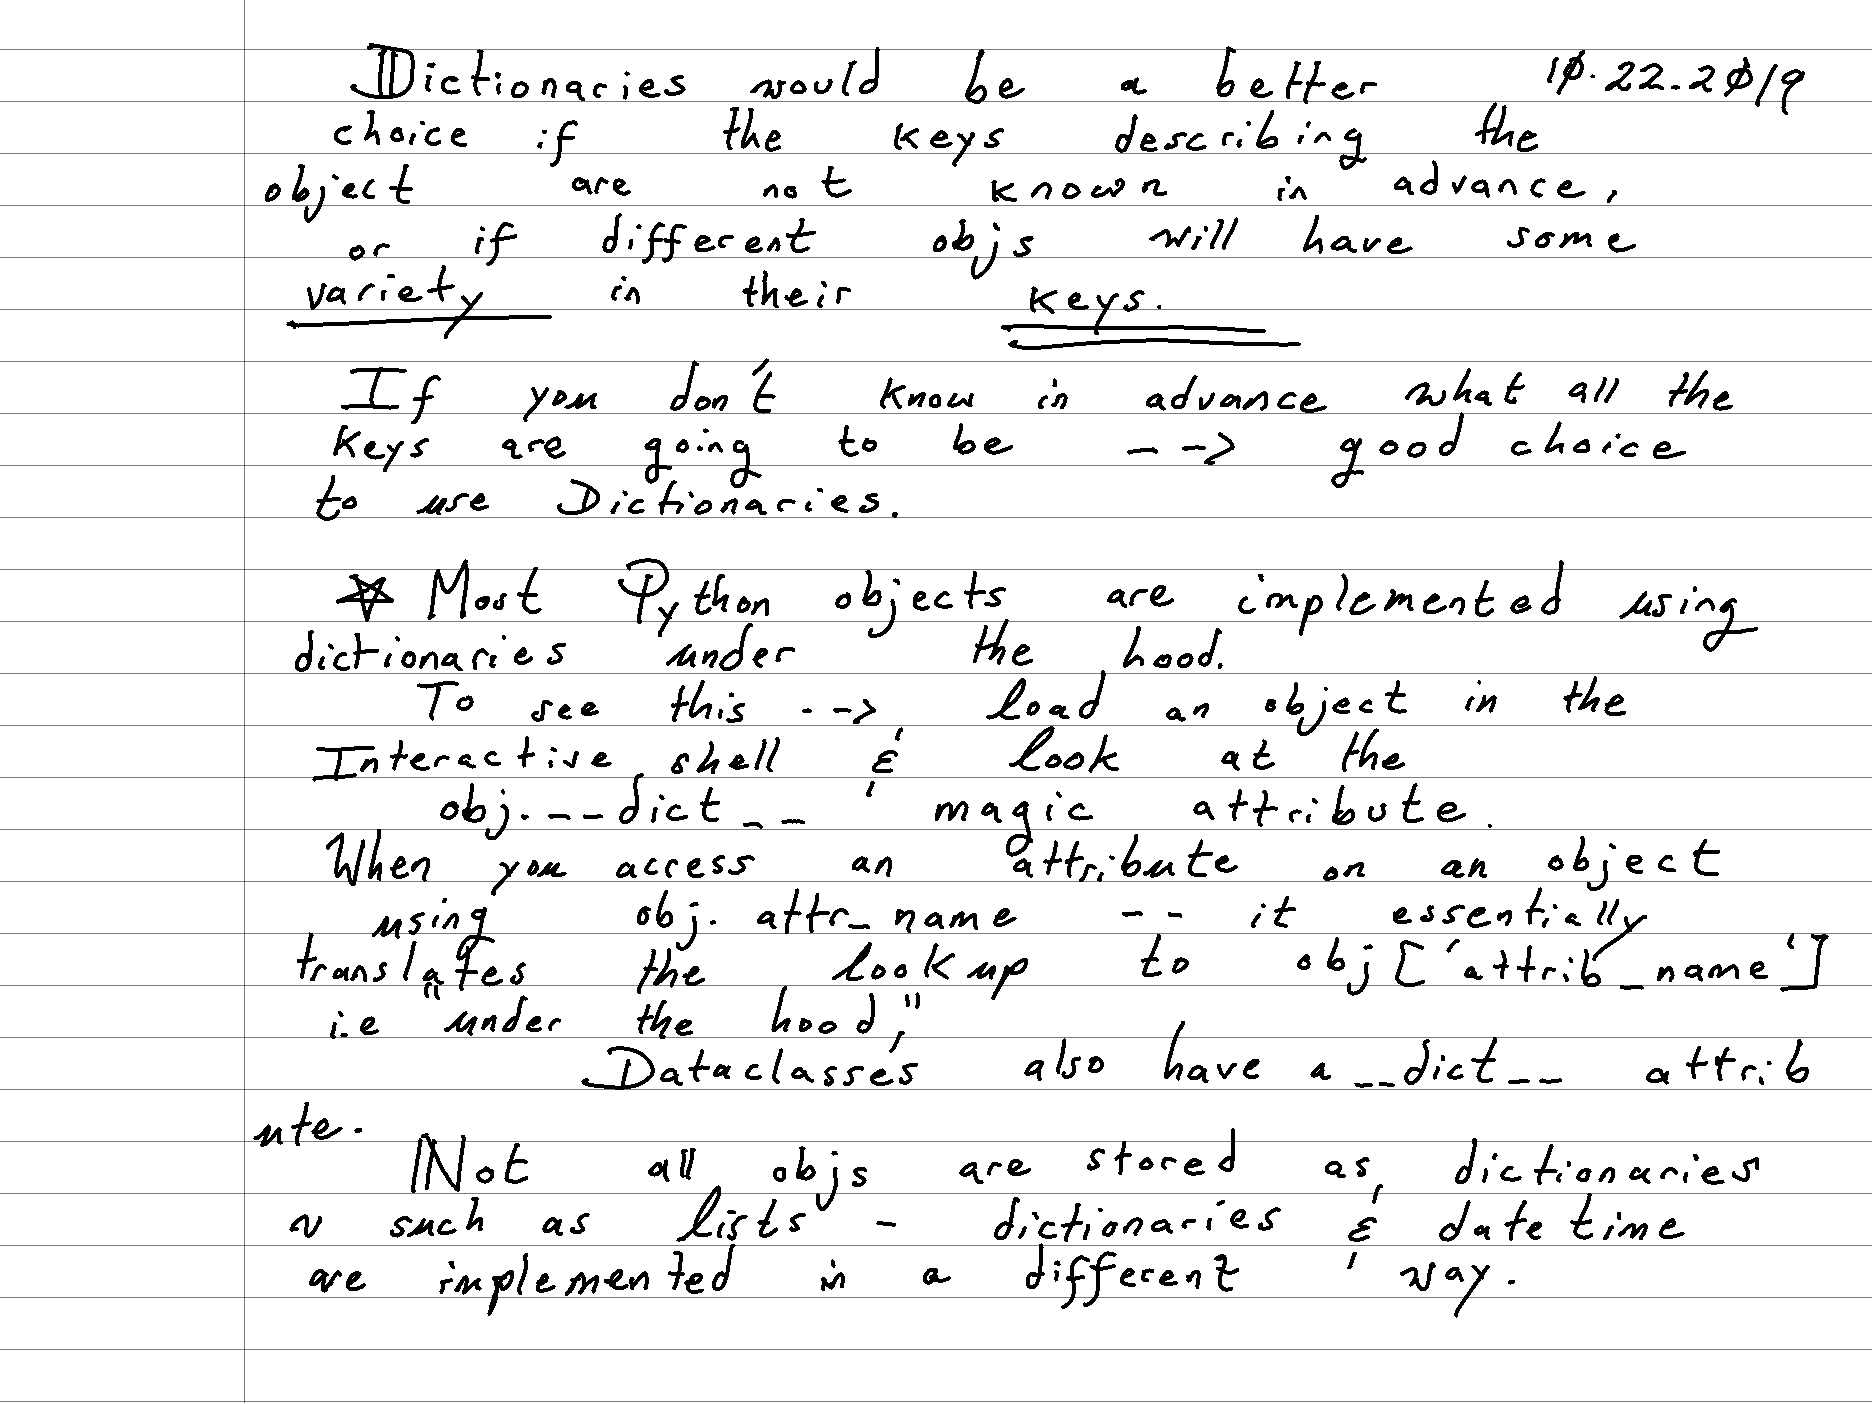 Dictionaries would be a better 10.22.2019
choice if the keys describing the
object are not known in advance,
or if different objs will have some
variety in their keys.
If you don't know in advance what all the
keys are going to be --> good choice
to use Dictionaries.
☆ Most Python objects are implemented using
dictionaries under the hood.
To see this --> load an object in the
Interactive shell & look at the
obj.__dict__ magic attribute.
When you access an attribute on an object
using obj.attr_name -- it essentially
translates the lookup to obj['attrib_name']
i.e "under the hood,"
Dataclasses also have a __dict__ attrib
ute.
Not all objs are stored as dictionaries
~ such as lists - dictionaries & datetime
are implemented in a different way.